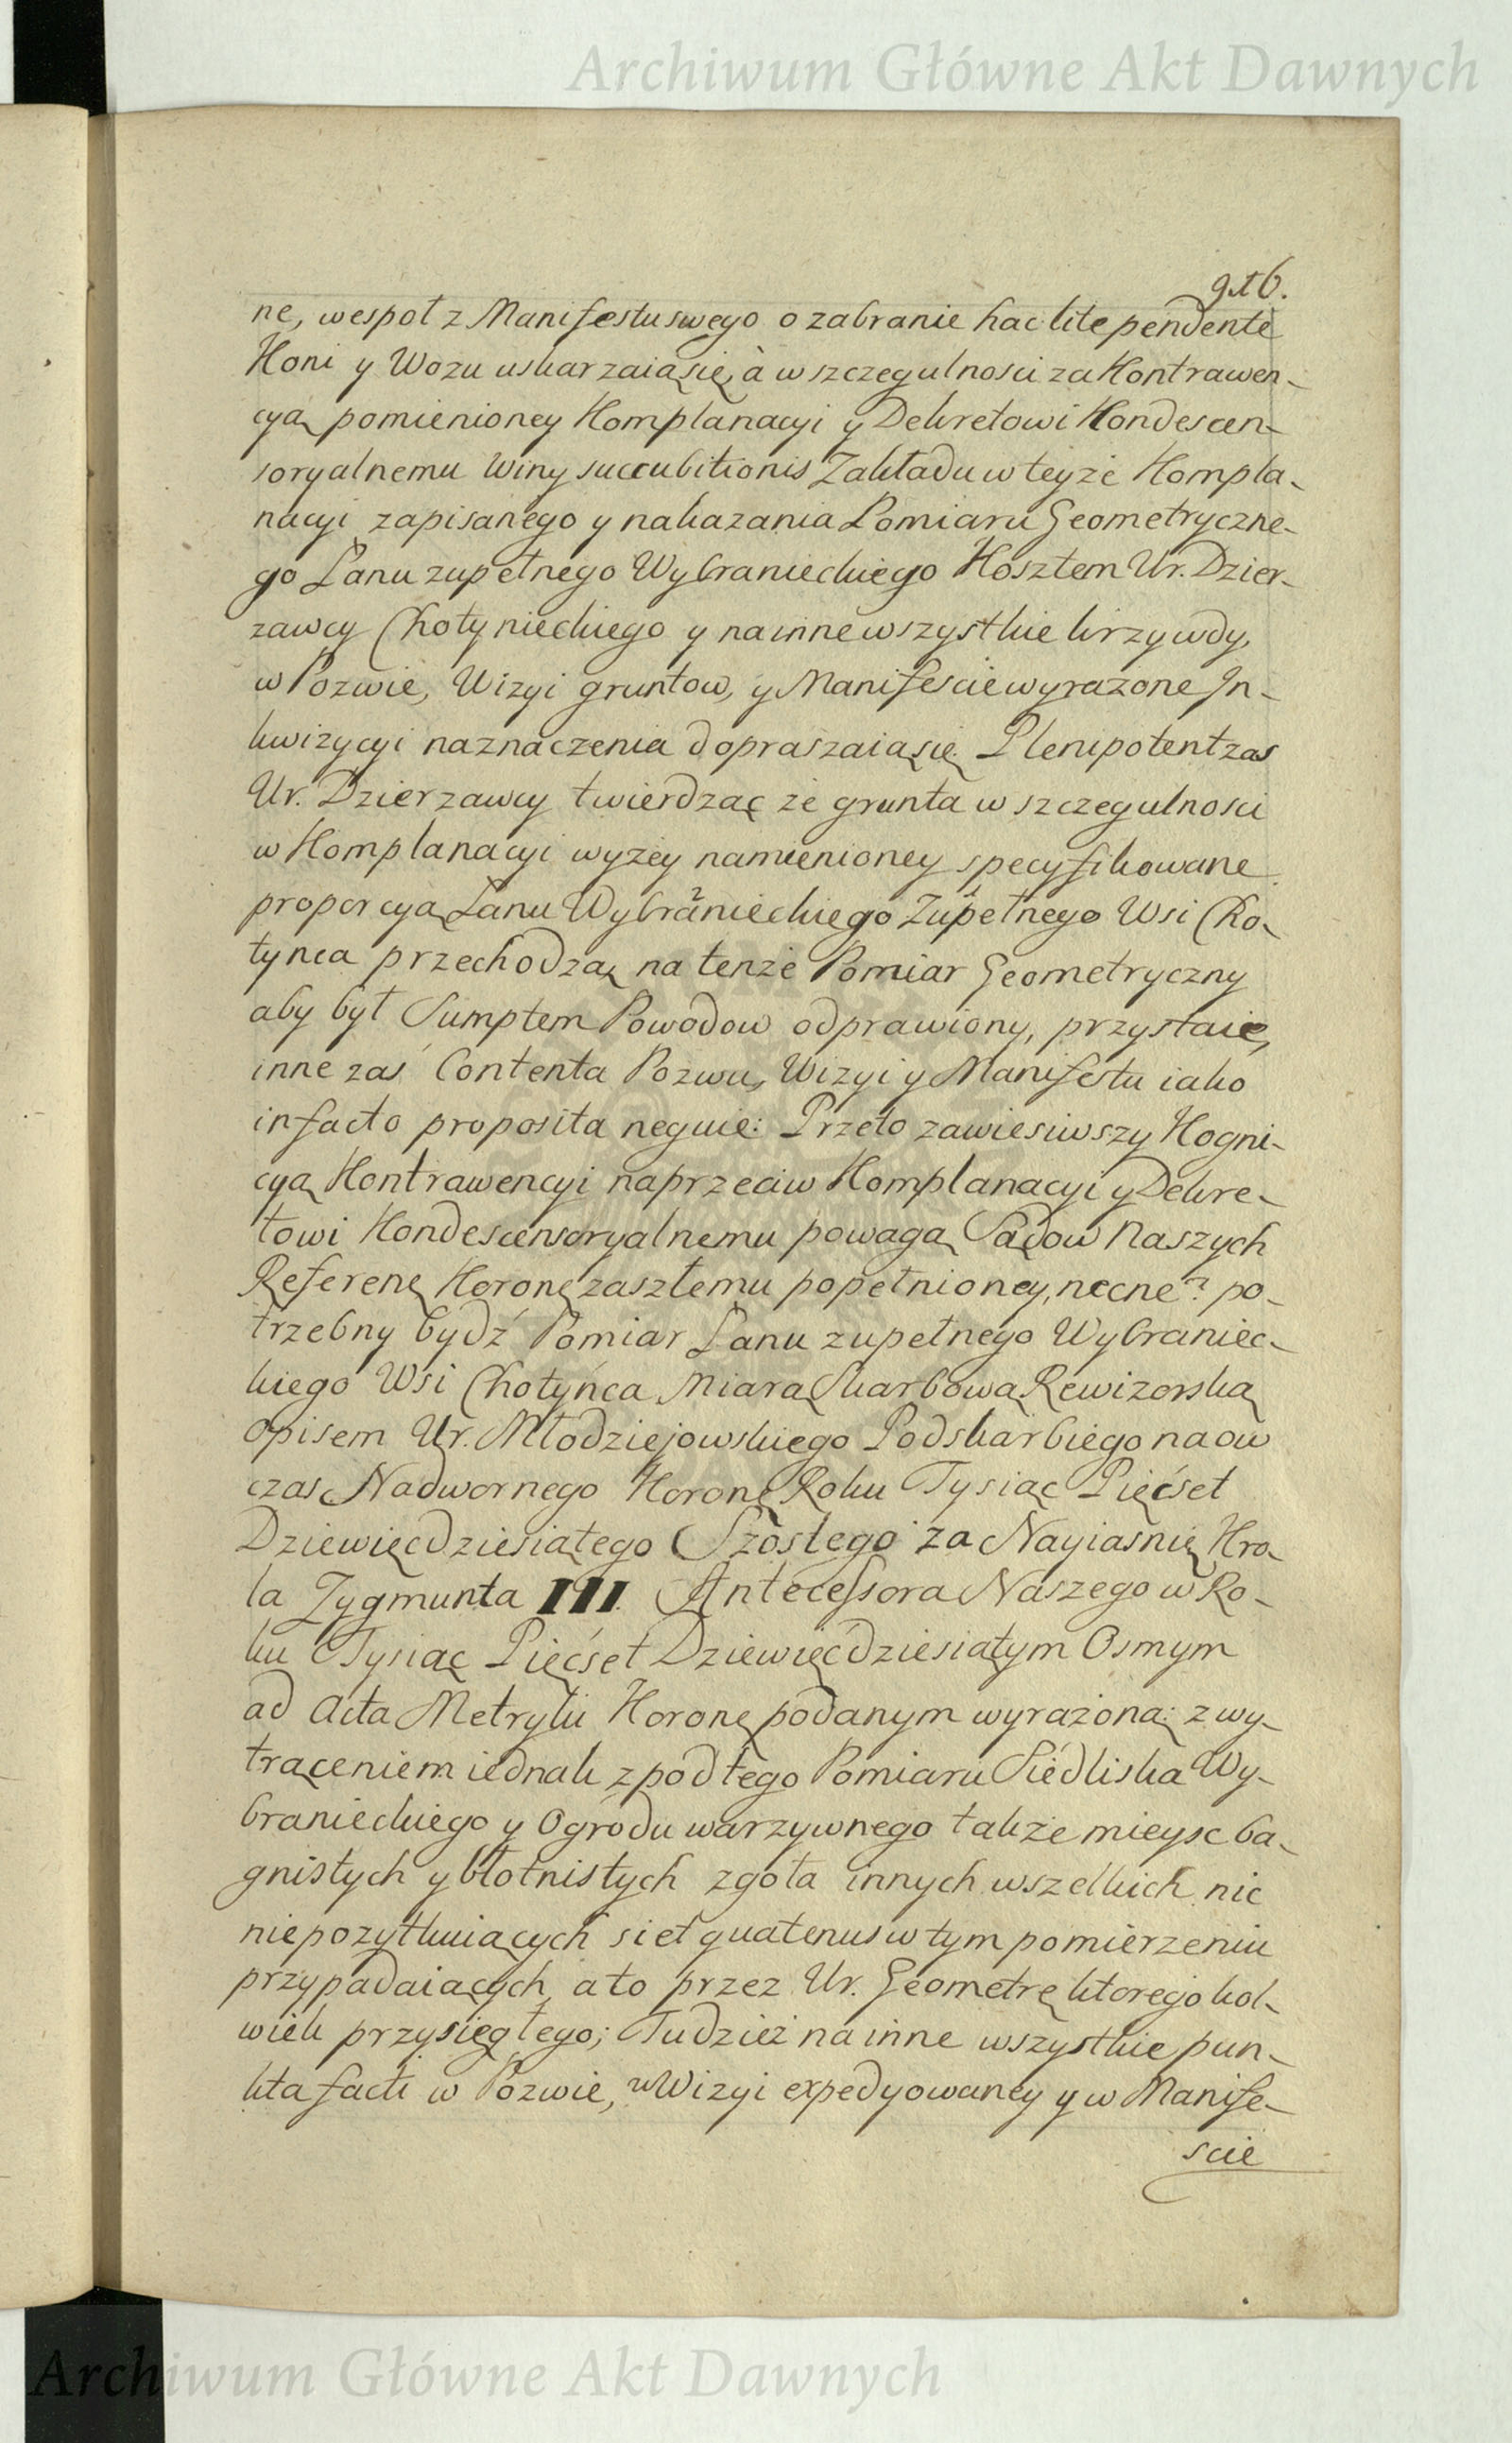 Archiwum Główne Akt Dawnych
ne, wespoł z Manifestu swego o zabranie hac lite pendente
Koni y Wozu uskarzaią się, à w szczegulności za Kontrawen-
cyą pomienioney Komplanacyi y Dekretowi Kondescen-
soryalnemu Winy succubitionis Zakładu w teyże Kompla-
nacyi zapisanego y nakazania Pomiaru Geometryczne-
go Łanu zupełnego Wybranieckiego Kosztem Ur. Dzier-
zawcy Chotynieckiego y na inne wszystkie krzywdy,
w Pozwie, Wizyi gruntow, y Manifescie wyrażone In-
kwizycyi naznaczenia dopraszaią się. Plenipotent zas
Ur. Dzierzawcy twierdząc że grunta w szczegulnosci
w Komplanacyi wyżey namienioney specyfikowane
proporcyą Łanu Wybranieckiego Zupełnego Wsi Cho-
tynca przechodzą, na tenże Pomiar Geometryczny
aby był Sumptem Powodow odprawiony, przystaie,
inne zaś Contenta Pozwu, Wizyi y Manifestu iako
in facto proposita neguie: Przeto zawiesiwszy Kogni-
cyą Kontrawencyi naprzeciw Komplanacyi y Dekre-
towi Kondescensoryalnemu powagą Sądow Naszych
Referenc Koronę zaszłemu popełnioney, necne? po-
trzebny bydź Pomiar Łanu zupełnego Wybraniec-
kiego Wsi Chotyńca Miarą Skarbową Rewizorską
opisem Ur. Młodziejowskiego Podskarbiego na ow
czas Nadwornego Koronę Roku Tysiąc Pięćset
Dziewięcdziesiątego Szóstego za Nayiaśnię Kro-
la Zygmunta III. Antecessora Naszego w Ro-
ku Tysiąc Pięćset Dziewięćdziesiątym Osmym
ad Acta Metryki Koronę podanym wyrażoną: z wy-
trąceniem iednak z pod tego Pomiaru Siedliska Wy-
branieckiego y Ogrodu warzywnego także mieysc ba-
gnistych y błotnistych zgoła innych wszelkich nic
niepozytkuiących si et quatenus w tym pomierzeniu
przypadaiących, a to przez Ur. Geometrę ktorego kol-
wiek przysięgłego; Tudzież na inne wszystkie pun-
kta facti w Pozwie, w Wizyi expedyowaney y w Manife-
scie
Archiwum Główne Akt Dawnych